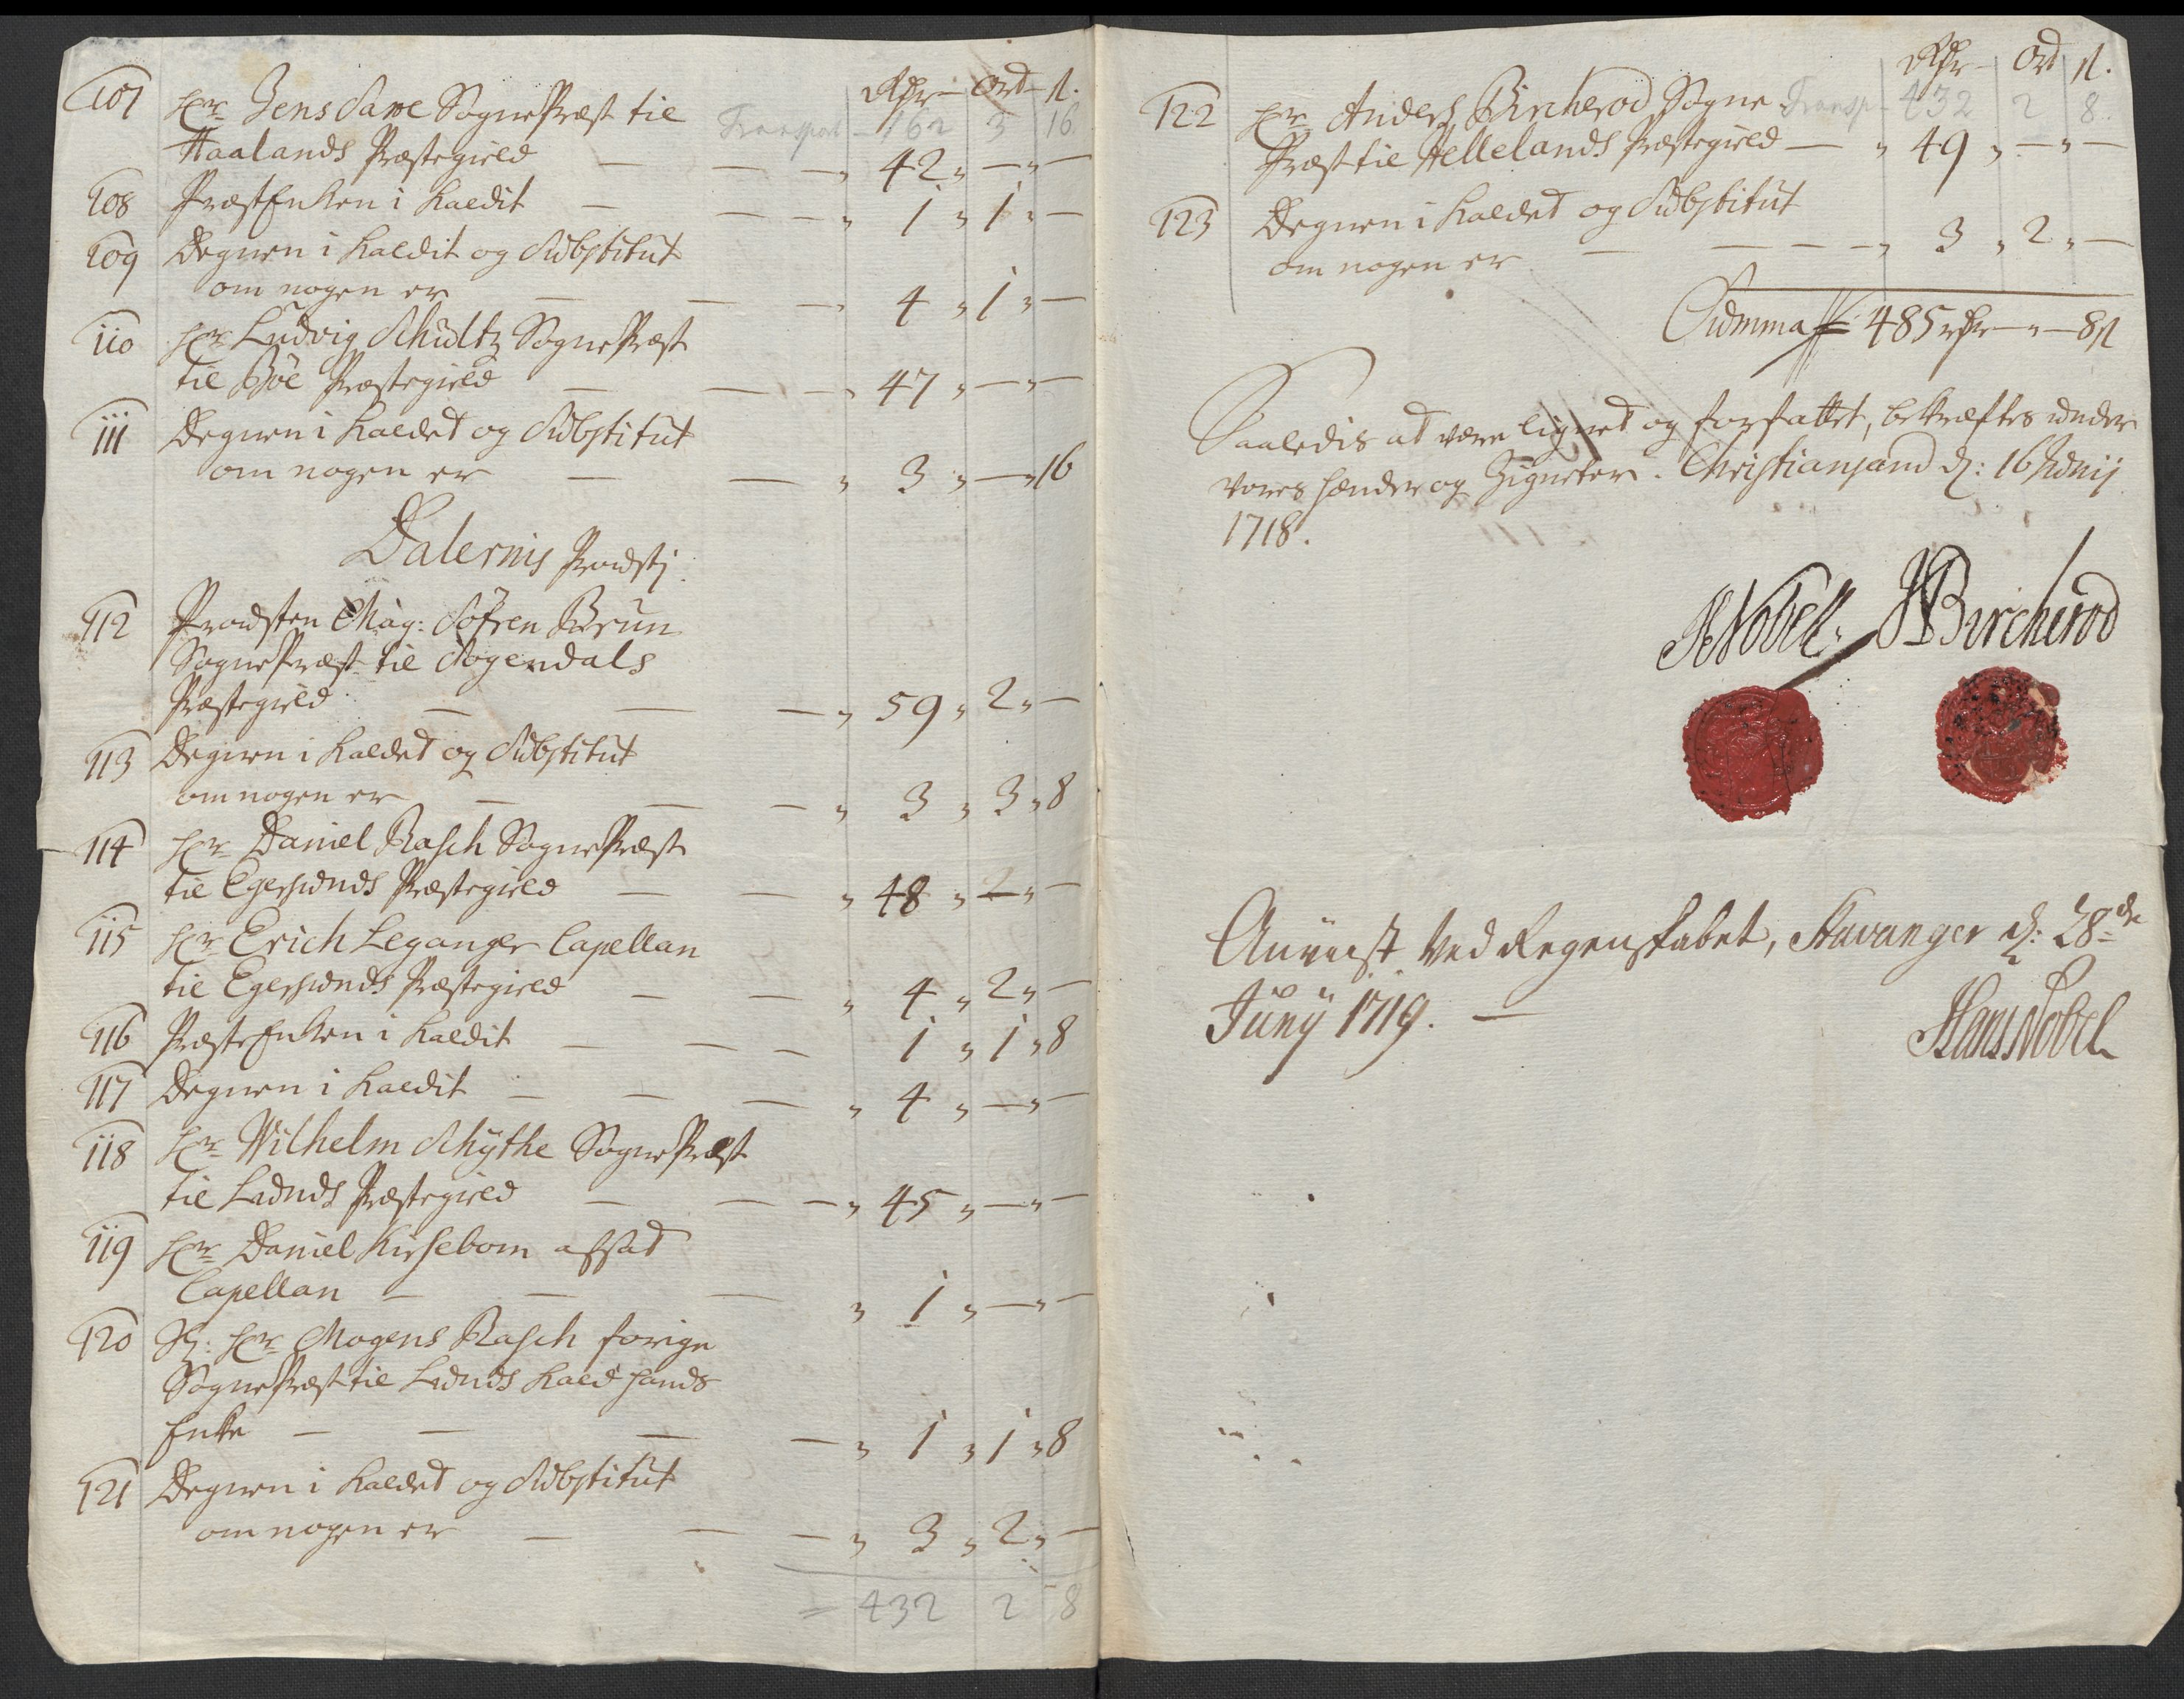 Rdr Ort ß.
Transport 162 3 16.
107 Hr Jens Sawe SognePræst til
Haalands Præstegield — — — „ 42 „ — „ —
108 PræstEnken i Kaldit — — — „ 1 „ 1 „ —
109 Degnen i Kaldit og Substitut
om nogen er — — — „ 4 „ 1 „ —
110 Hr Ludvig Schultz SognePræst
til Bøe Præstegield — — — „ 47 „ — „ —
111 Degnen i Kaldet og Substitut
om nogen er — — „ 3 „ — „ 16
Dalernis Provstj
112 Provsten Mag: Søfren Brun
SognePræst til Sogendals
Præstegield — — — „ 59 „ 2 „ —
113 Degnen i Kaldet og Substitut
om nogen er — — — „ 3 „ 3 „ 8
114 Hr Daniel Rasch SognePræst
til Egersunds Præstegield — — „ 48 „ — „ —
115 Hr Erich Leganger Capellan
til Egersunds Præstegield — — „ 4 „ 2 „ —
116 PræsteEnken i Kaldit — — — 1 „ 1 „ 8
117 Degnen i Kaldit — — — „ 4 „ — „ —
118 Hr Wilhelm Schythe SognePræst
til Lunds Præstegield — — — „ 45 „ — „ —
119 Hr Daniel Kirsebom afsat
Capellan — — — „ 1 „ — „ —
120 Sl: Hr Mogens Rasch forige
SognePræst til Lunds Kald hands
Enke — — — — „ 1 „ 1 „ 8
121 Degnen i Kaldet og Substitut
om nogen er — — — „ 3 „ 2 „ —
= 432 2 8
Rdr Ort ß.
Transp 432 2 8.
122 Hr Anders Bircherod Sogne
Præst til Hellelands Præstegield — „ 49 „ — „ —
123 Degnen i Kaldet og Substitut
om nogen er — — — — „ 3 „ 2 „ —
Summa 485 rdr — „ — 8 ß
Saaledis at være lignet og forfattet, bekræftes under
vores Hænder og Zigneter. Christiansand d: 16 Junij
1718.
HNobell. JBircherod
Anviist Ved Regenskabet, Stavanger d: 28de
Junij 1719. —
Hans Nobel